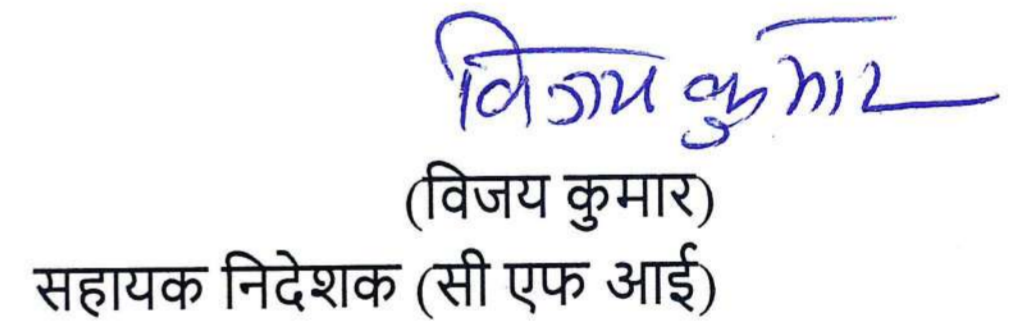 विजय कुमार
(विजय कुमार)
सहायक निदेशक (सी एफ आई)